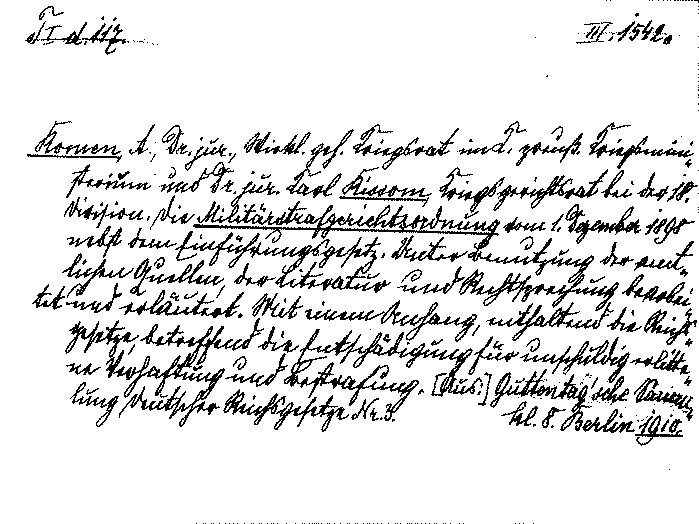 T I d. 117. III. 1542a
Romen, A., Dr. jur., Wirkl. geh. Kriegsrat im K. preuß. Kriegsmini-
sterium und Dr. jur. Carl Rissom, Kriegsgerichtsrat bei der 18.
Division. Die Militärstrafgerichtsordnung vom 1. Dezember 1898
nebst dem Einführungsgesetz. Unter Benutzung der amt-
lichen Quellen, der Literatur und Rechtsprechung bearbei-
tet und erläutert. Mit einem Anhang, enthaltend die Reichs-
gesetze, betreffend die Entschädigung für unschuldig erlitte-
ne Verhaftung und Bestrafung. [Aus:] Guttentag'sche Samm-
lung Deutscher Reichsgesetze Nr. 3. kl. 8. Berlin 1910.